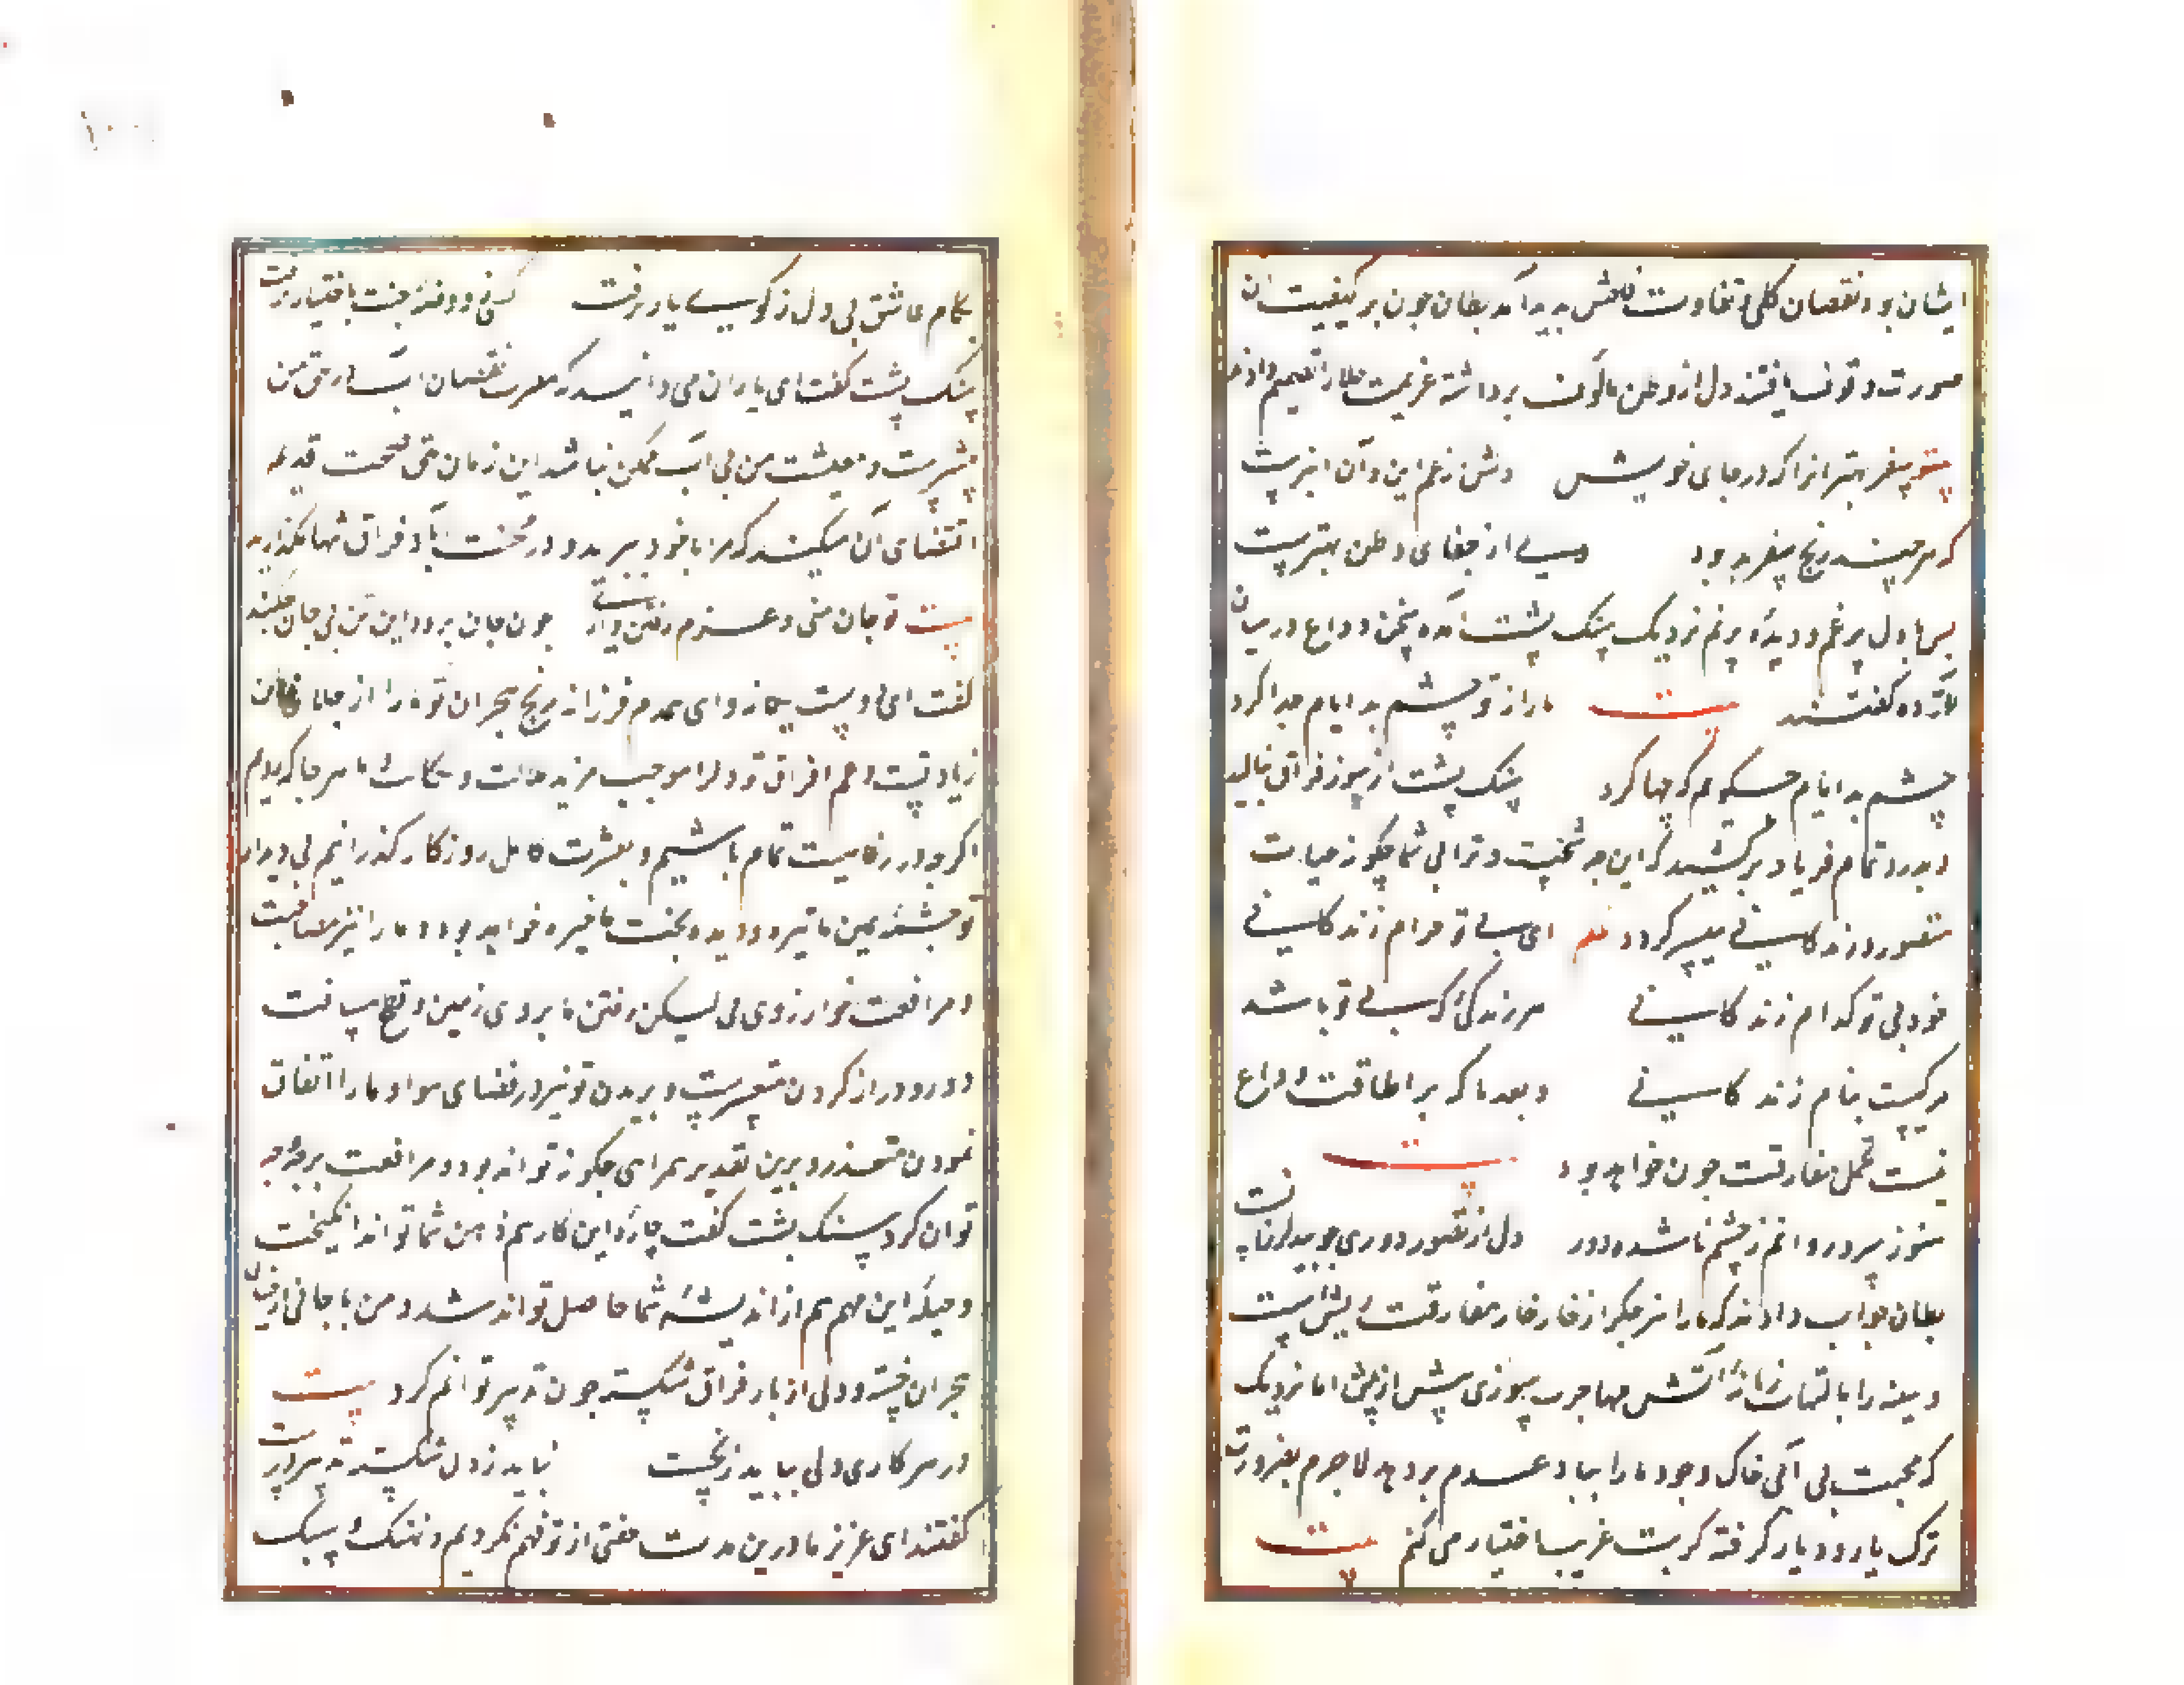 ایشان بود نقصان کلی و تفاوت فاحش پدید آمد بطان چون بر کیفیت آن
صورت وقوف یافتند دل از وطن مألوف برداشته عزیمت جلا را تصمیم دادند
سفر بهتر آنرا که در جای خویش دلش زغم این و آن ابترست
که هرچند رنج سفر بد بود ولی از جفای وطن بهترست
پس با دل پر غم و دیده پر نم نزدیک سنک پشت آمده سخن وداع در میان
آورده گفتند بیت ما را ز تو چشم بد ایام جدا کرد
چشم بد ایام چکویم که چها کرد سنک پشت از سوز فراق بنالید
و بدرد تمام فریاد برکشید که این چه سخنست و مرا بی شما چکونه حیات
متصور و زندکانی میسر کردد نظم ای بی تو حرام زندکانی
خود بی تو کدام زندکانی هر زندکی که بی تو باشد
مرکیست بنام زندکانی و بعد ما که مرا طاقت وداع
نیست تحمل مفارقت چون خواهد بود بیت
هنوز سرو روانم ز چشم ناشده دور دل از تصور دوری چو بید لرزانست
بطان جواب دادند که ما را نیز جکر از خار خار مفارقت ریش است
و سینه را بالتهاب آتش مهاجرت سوزی بیش از پیش اما نزدیک
که محبت بی آبی خاک وجود ما را بباد عدم بردهد لاجرم بضرورت
ترک یار و دیار کرفته کربت غربت اختیار می کنم بیت
بکام عاشق بی دل ز کوی یار نرفت کسی ز روضه جنت باختیار نرفت
سنک پشت گفت ای یاران می دانید که مضرت نقصان آب در حق من
بیشترست و معیشت من بی آب ممکن نباشد این زمان حق صحبت قدیم
اقتضای آن میکند که مرا با خود ببرید و در محنت آباد فراق تنها مکذارید
بیت تو جان منی و عزم رفتن داری چون جان برود این تن بی جان چکند
گفت ای دوست یکانه و ای همدم فرزانه رنج هجران تو ما را از جلاء خان
زیادتست و غم افتراق تو دلرا موجب مزید ما هر جا که رویم
اکرچه در رفاهیت تمام باشیم و بعشرت کامل روزکار کذرانیم بی دیدار
تو چشم عیش ما تیره و دیده بخت ما خیره خواهد بود و ما را نیز مصاحبت
و مرافقت تو آرزوی لیکن رفتن ما بر روی زمین و قطع مسافت
دور و دراز کردن متعسرست و پریدن تو نیز در فضای هوا و ما را اتفاق
نمودن متعذر و برین تقدیر همراهی چکونه تواند بود و مرافقت بر چه وجه
توان کرد سنک پشت گفت چاره این کار هم ذهن شما تواند انکیخت
و حیله این مهم هم از اندیشه شما حاصل تواند شد و من با جانی از خیال
هجران خسته و دلی از بار فراق شکسته چون تدبیر توانم کرد بیت
در هر کاری دلی بباید ز نخست نباید ز دل شکسته تدبیر درست
گفتند ای عزیز ما درین مدت خفتی از تو فهم نکردیم و سبک